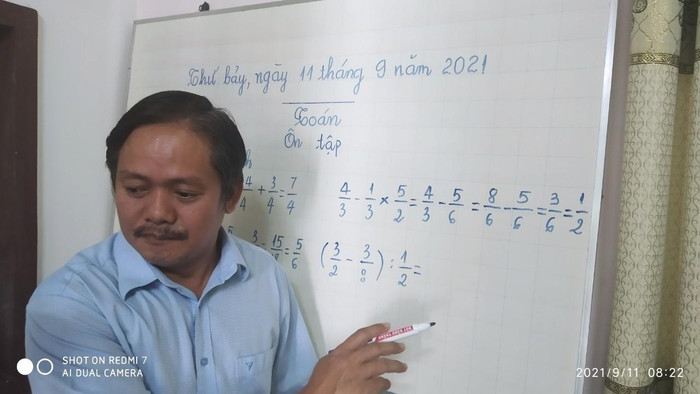 Thứ bảy, ngày 11 tháng 9 năm 2021
Toán
Ôn tập
h
4/4 + 3/4 = 7/4
4/3 - 1/3 × 5/2 = 4/3 - 5/6 = 8/6 - 5/6 = 3/6 = 1/2
3 - 15 = 5/6
(3/2 - 3/8) : 1/2 =
SHOT ON REDMI 7
AI DUAL CAMERA
2021/9/11 08:22